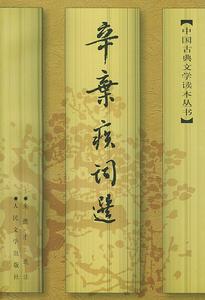 【中国古典文学读本丛书】
辛棄疾词選
人民文学出版社